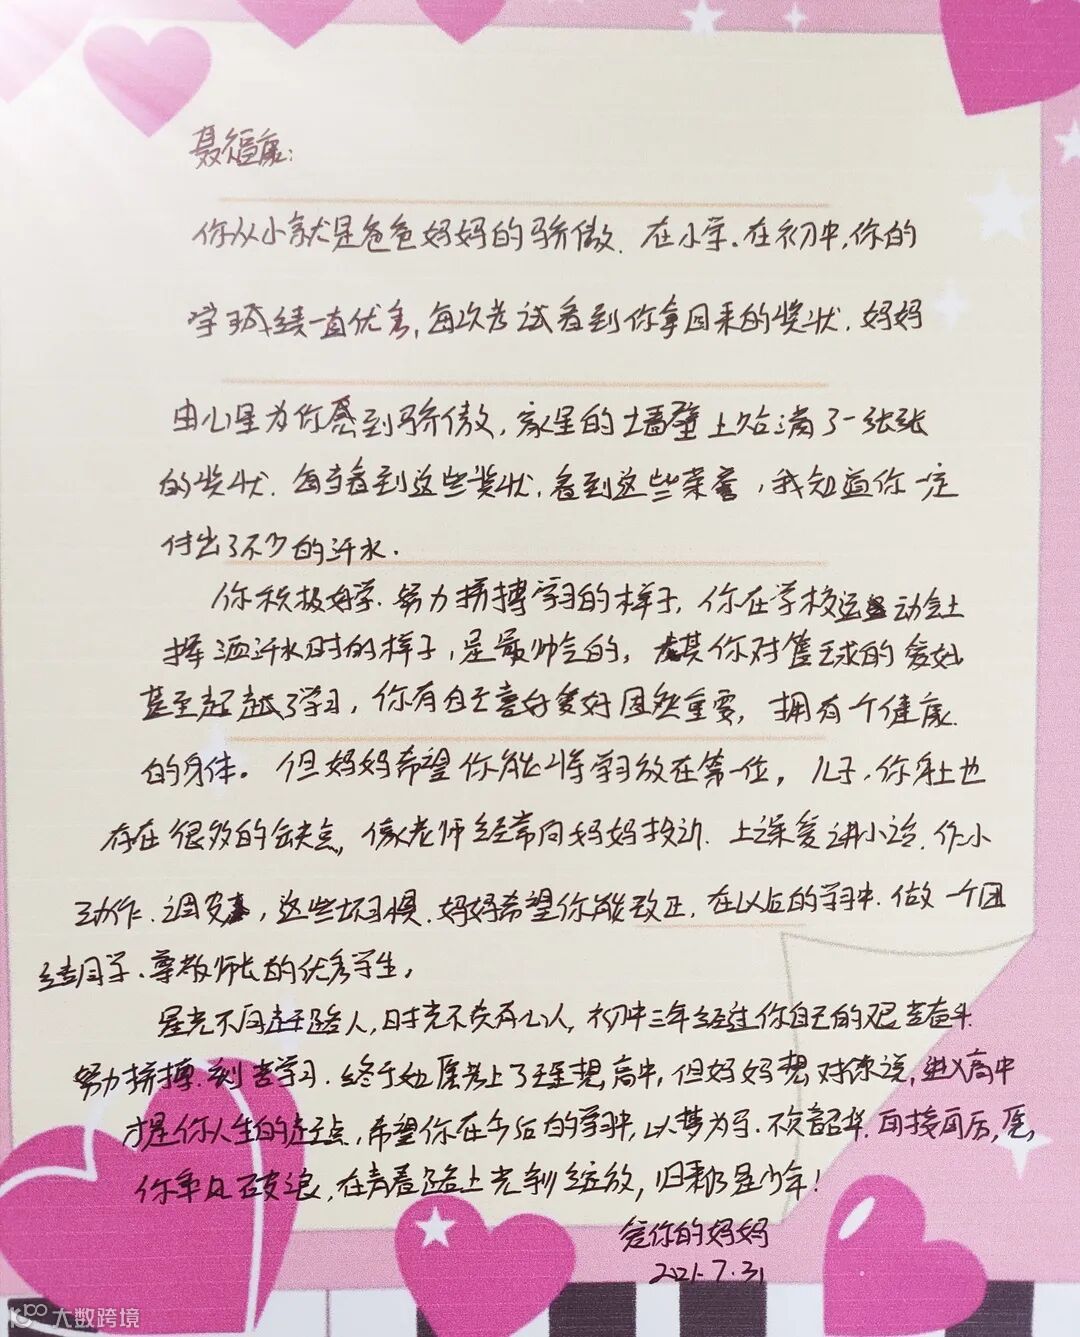 聂福康:
你从小就是爸爸妈妈的骄傲.在小学.在初中,你的
学习成绩一直优秀,每次考试看到你拿回来的奖状.妈妈
由心里为你感到骄傲,家里的墙壁上贴满了一张张
的奖状.每当看到这些奖状,看到这些荣誉,我知道你一定
付出了不少的汗水.
你积极好学.努力拼搏学习的样子,你在学校运动会上
挥洒汗水时的样子,是最帅气的,尤其你对篮球的爱好
甚至超越了学习,你有自己喜好爱好固然重要,拥有个健康
的身体。但妈妈希望你能将学习放在第一位,儿子,你身上也
存在很多的缺点,像老师经常向妈妈投诉.上课爱讲小话.作小
动作.调皮,这些坏习惯.妈妈希望你能改正,在以后的学习中.做一个团
结同学.尊敬师长的优秀学生。
星光不问赶路人,时光不负有心人,初中三年经过你自己的艰苦奋斗.
努力拼搏.刻苦学习.终于如愿考上了理想高中,但妈妈想对你说,进入高中
才是你人生的起点,希望你在今后的学习中,以梦为马.不负韶华.
你乘风破浪,在青春路上光彩绽放,归来仍是少年!
爱你的妈妈
2021.7.31
大数跨境